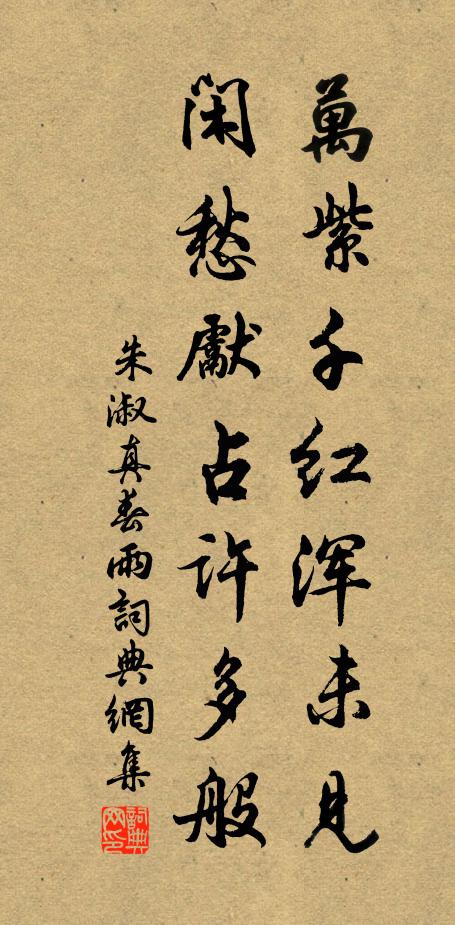 萬紫千红浑未見
闲愁獻占许多般
朱淑真春雨詞典網集
詞典网印